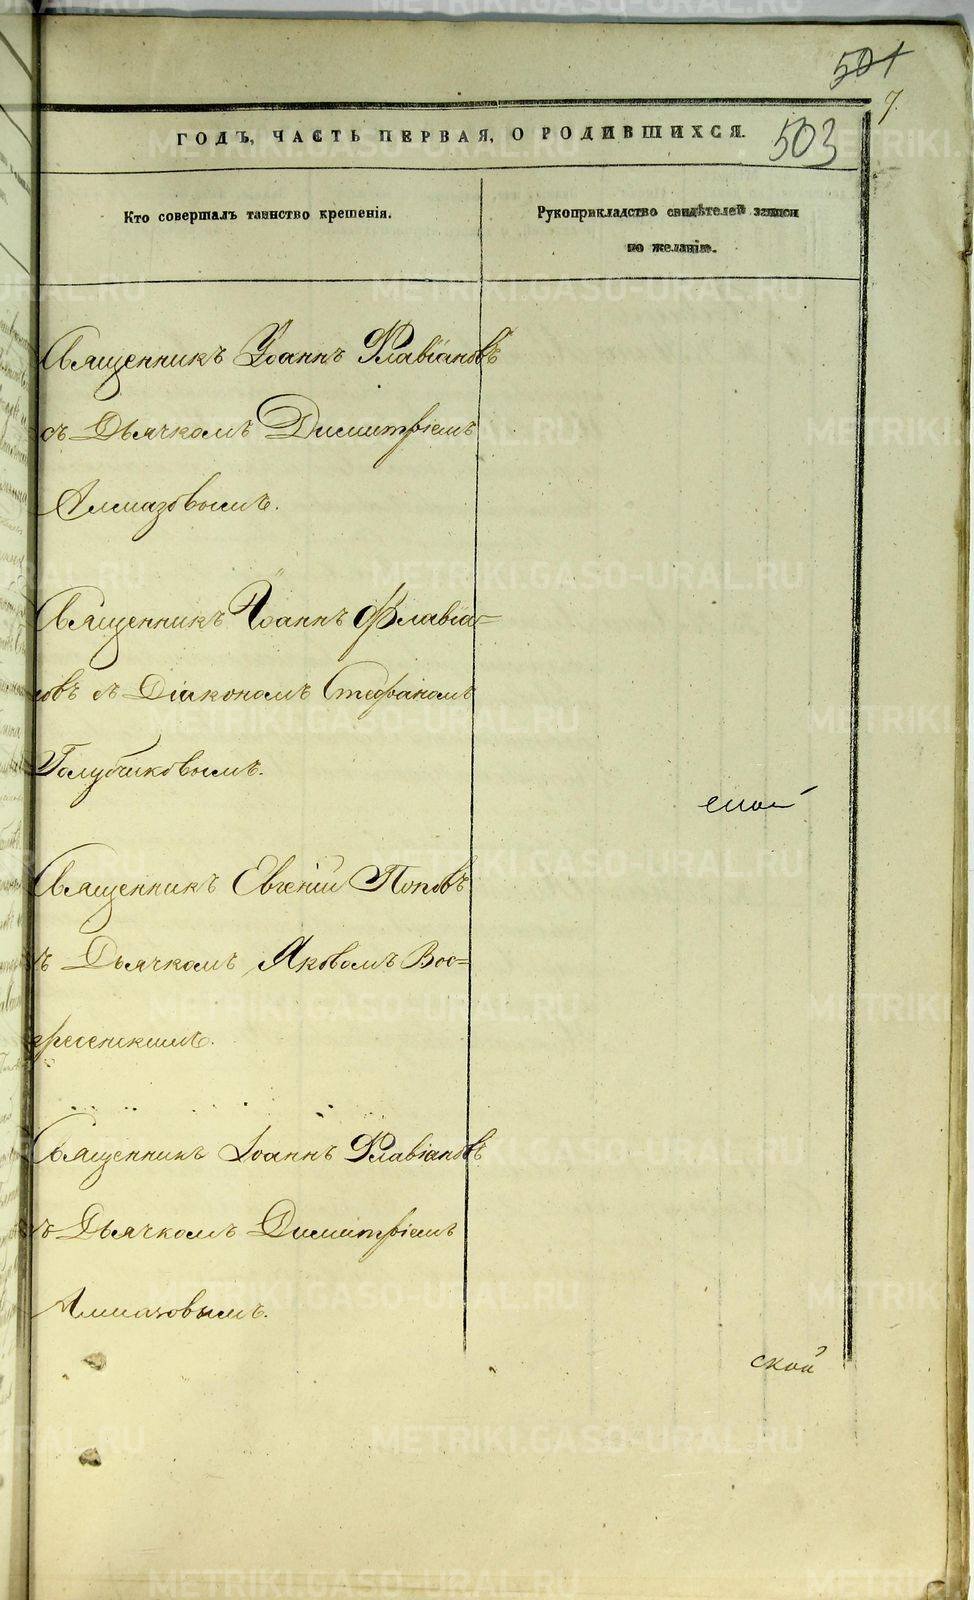 501
7.
ГОДЪ, ЧАСТЬ ПЕРВАЯ, О РОДИВШИХСЯ.
503
Кто совершалъ таинство крещенія.
Рукоприкладство свидѣтелей записи
по желанію.
Священникъ Іоаннъ Флавіановъ
съ Дьячкомъ Димитріемъ
Алмазовымъ.
Священникъ Іоаннъ Флавіа=
новъ съ Діакономъ Стефаномъ
Голубчиковымъ.
Священникъ Евгеній Поповъ
съ Дьячкомъ Яковомъ Вос=
кресенскимъ.
Священникъ Іоаннъ Флавіановъ
съ Дьячкомъ Димитріемъ
Алмазовымъ.
ской
METRIKI.GASO-URAL.RU